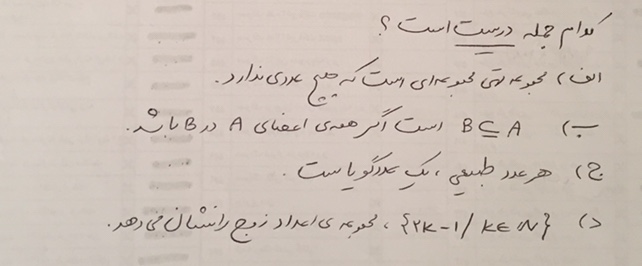 کدام جمله درست است؟
الف) مجموعه تهی مجموعه‌ای است که هیچ عددی ندارد.
ب) B ⊆ A است اگر همه‌ی اعضای A در B باشد.
ج) هر عدد طبیعی، یک عدد گویا ست.
د) {۲k-۱ / k∈N}، مجموعه‌ی اعداد زوج را نشان می‌دهد.